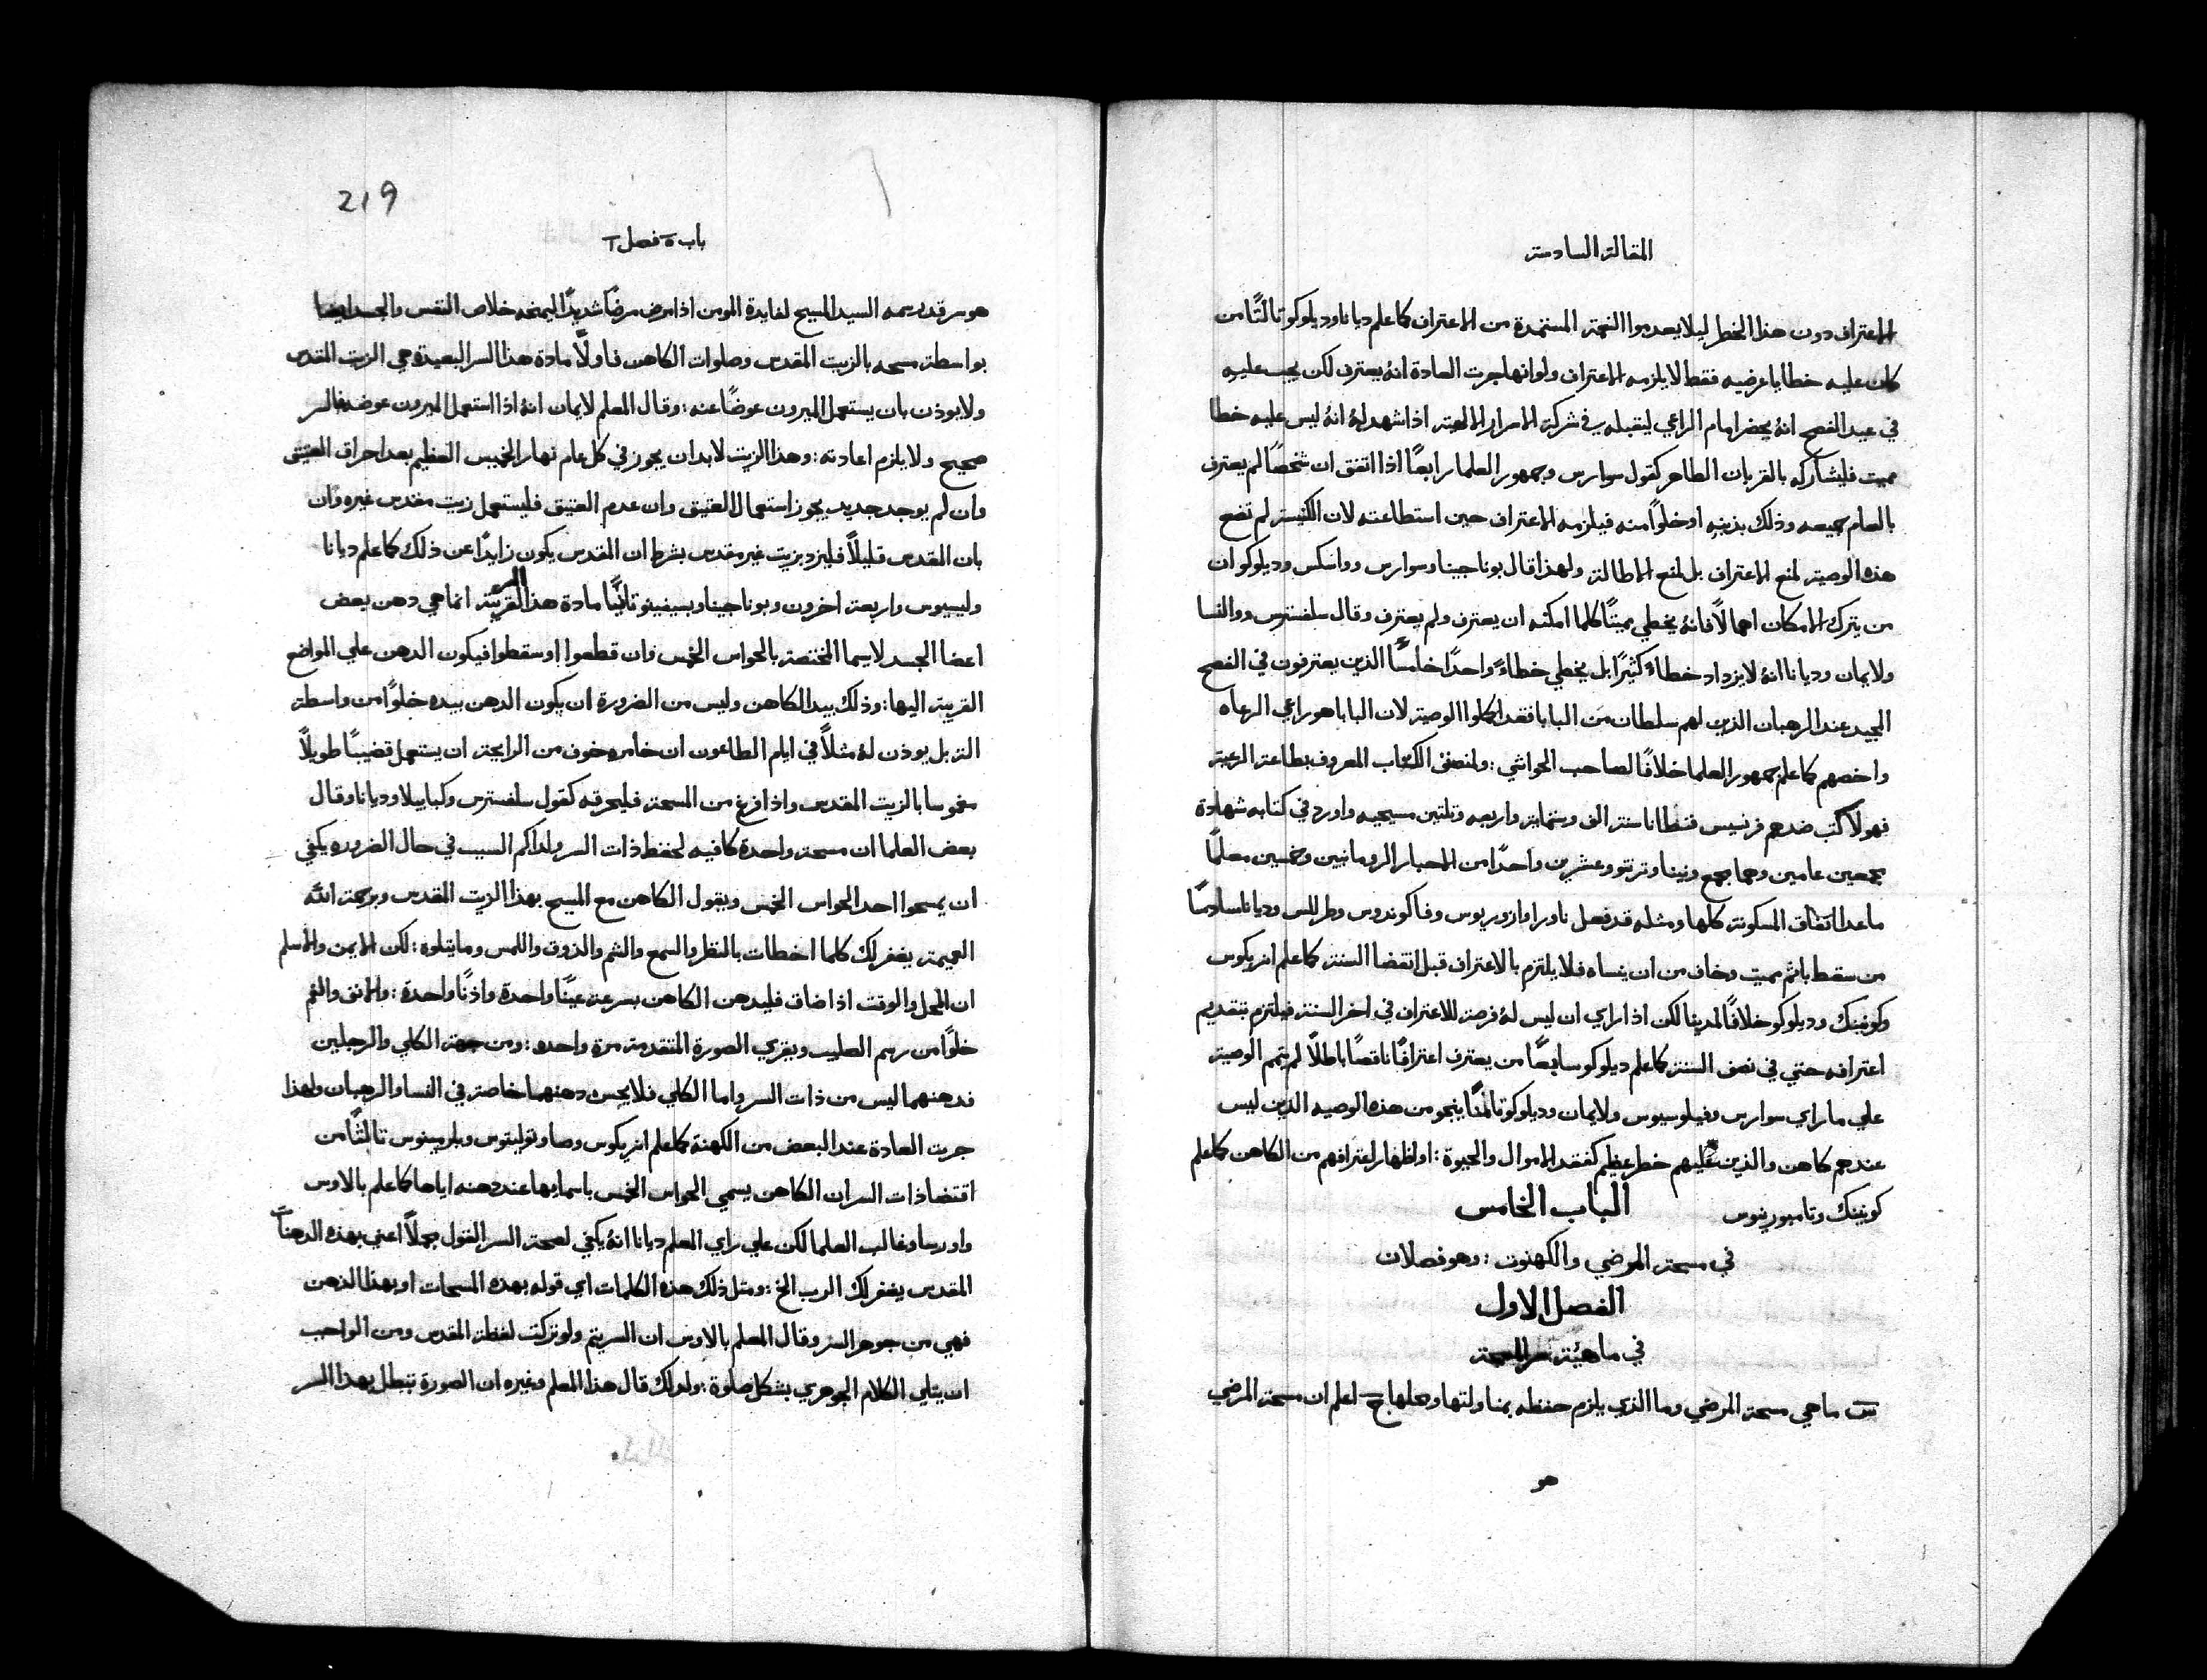 المقالة السادسة
الاعتراف دون هذا الخطر ليلا يعدموا النعمة المستمدة من الاعتراف كما علم ديانا وديلوكو تالتًا من
كان عليه خطايا عرضيه فقط لا يلزمه الاعتراف ولو انها جرت العادة انهُ يعترف لكن يجب عليه
في عيد الفصح انهُ يحضر امام الراعي ليتقبله في شركة الاسرار الالهية اذا شهد لهُ انهُ ليس عليه خطا
مميت فليشاركه بالقربان الطاهر كقول سوارس وجمهور العلما رابعًا اذا اتفق ان شخصًا لم يعترف
بالعام جميعه وذلك بذنبه او خلوًا منه فيلزمه الاعتراف حين استطاعته لان الكنيسة لم تضع
هذه الوصية لمنع الاعتراف بل لمنع الاطالة ولهذا قال بوناجينا وسوارس وواسكس وديلوكو ان
من يترك الامكان اهمالاً فانهُ يخطي مميتًا كلما امكنه ان يعترف ولم يعترف وقال سلفسترس ووالنسا
ولايمان وديانا انهُ لا يزداد خطاءً كثيرًا بل يخطي خطاءً واحدًا خامسًا الذين يعترفون في الفصح
المجيد عند الرهبان الذين لهم سلطان من البابا فقد اكملوا الوصية لان البابا هو راعي الرعاه
واخصهم كما علم جمهور العلما خلافًا لصاحب الحواشي : ولمنصف الكتاب المعروف بطاعة الرعية
فهولا كتب ضدهم فرنسيس قنطانا سنة الف وستماية واربعه وتلتين مسيحيه واورد في كتابه شهادة
مجمعين عامين وهما مجمع وينيا وترنتو وعشرين واحدًا من الاحبار الرومانيين وخمسين معلمًا
ما عدا اتفاق المسكونة كلها ومثله قد فعل ناورا وازوريوس وفاكوندوس وطرللس وديانا سادسًا
من سقط باثم مميت وخاف من ان ينساه فلا يلتزم بالاعتراف قبل انقضا السنة كما علم انريكوس
وكونينك وديلوكو خلافًا لمدينا لكن اذا راي ان ليس لهُ فرصة للاعتراف في اخر السنة فيلتزم بتقديم
اعترافه حتي في نصف السنة كما علم ديلوكو سابعًا من يعترف اعترافًا ناقصًا باطلًا لم يتمم الوصية
علي ما راي سوارس وفيلوسيوس ولايمان وديلوكو تامنًا ينجو من هذه الوصيه الذين ليس
عندهم كاهن والذين عليهم خطر عظيم كفقد الاموال والحيوة : او اظهار اعترافهم من الكاهن كما علم
كونينك وتامبورينوس
الباب الخامس
في مسحة المرضي والكهنوت : وهو فصلان
الفصل الاول
في ماهيئة سر المسحة
س ما هي مسحة المرضي وما الذي يلزم حفظه بمناولتها وعملها ج اعلم ان مسحة المرضي
هو
219
باب ٥ فصل ١
هو سر قد رسمه السيد المسيح لفايدة المومن اذا مرض مرضًا شديدًا ليمنحه خلاص النفس والجسد ايضا
بواسطة مسحه بالزيت المقدس وصلوات الكاهن فاولًا مادة هذا السر البعيدة هي الزيت المقدس
ولا يوذن بان يستعمل الميرون عوضًا عنه : وقال المعلم لايمان انهُ اذا استعمل الميرون عوضه فالسر
صحيح ولا يلزم اعادته : وهذا الزيت لابد ان يجوز في كل عام نهار الخميس العظيم بعد احراق العتيق
وان لم يوجد جديد يجوز استعمال العتيق وان عدم العتيق فليستعمل زيت مقدس غيره وان
بان المقدس قليلاً فليزد بزيت غير مقدس بشرط ان المقدس يكون زايدًا عن ذلك كما علم ديانا
وليسيوس واربعة اخرون وبوناجينا وبسيفينو تانيًا مادة هذا السر القريبة انما هي دهن بعض
اعضا الجسد لاسيما المختصة بالحواس الخمس وان قطعوا او سقطوا فيكون الدهن علي المواضع
القريبة اليها : وذلك بيد الكاهن وليس من الضرورة ان يكون الدهن بيده خلوًا من واسطة
التة بل يوذن لهُ مثلاً في ايام الطاعون ان خامره خوف من الرايحة ان يستعمل قضيبًا طويلاً
مغموسا بالزيت المقدس واذا فرغ من المسحة فليحرقه كقول سلفسترس وكبابيلا وديانا وقال
بعض العلما ان مسحة واحدة كافيه لحفظ ذات السر ولذاكم السبب في حال الضروره يكفي
ان يمسحوا احد الحواس الخمس ويقول الكاهن مع المسيح بهذا الزيت المقدس وبرحمة الله
العميمة يغفر لك كلما اخطات بالنظر والسمع والشم والذوق واللمس وما يتلوه : لكن الايمن والاسلم
ان المحل والوقت اذا ضاق فليدهن الكاهن بسرعة عينًا واحدة واذنًا واحدة : والانف والفم
خلوًا من رسم الصليب ويقري الصورة المتقدمة مرة واحده : ومن جهة الكلي والرجلين
فدهنهما ليس من ذات السر واما الكلي فلا يحسن دهنهما خاصة في النسا والرهبان ولهذا
جرت العادة عند البعض من الكهنة كما علم انريكوس وصا وتوليتوس وبلرمينوس تالثًا من
اقتضا ذات السر ان الكاهن يسمي الحواس الخمس باسمايها عند دهنه اياها كما علم بالاوس
واورسا وغالب العلما لكن علي راي المعلم ديانا انهُ يكفي لصحة السر القول مجملاً اعني بهذه الدهنات
المقدس يغفر لك الرب الخ : ومثل ذلك هذه الكلمات اي قوله بهذه المسحات او بهذا الدهن
فهي من جوهر السر وقال المعلم بالاوس ان السر يتم ولو تركت لفظة المقدس ومن الواجب
ان يتلي الكلام الجوهري بشكل صلوة : ولذلك قال هذا المعلم وغيره ان الصورة تبطل بهذا السر